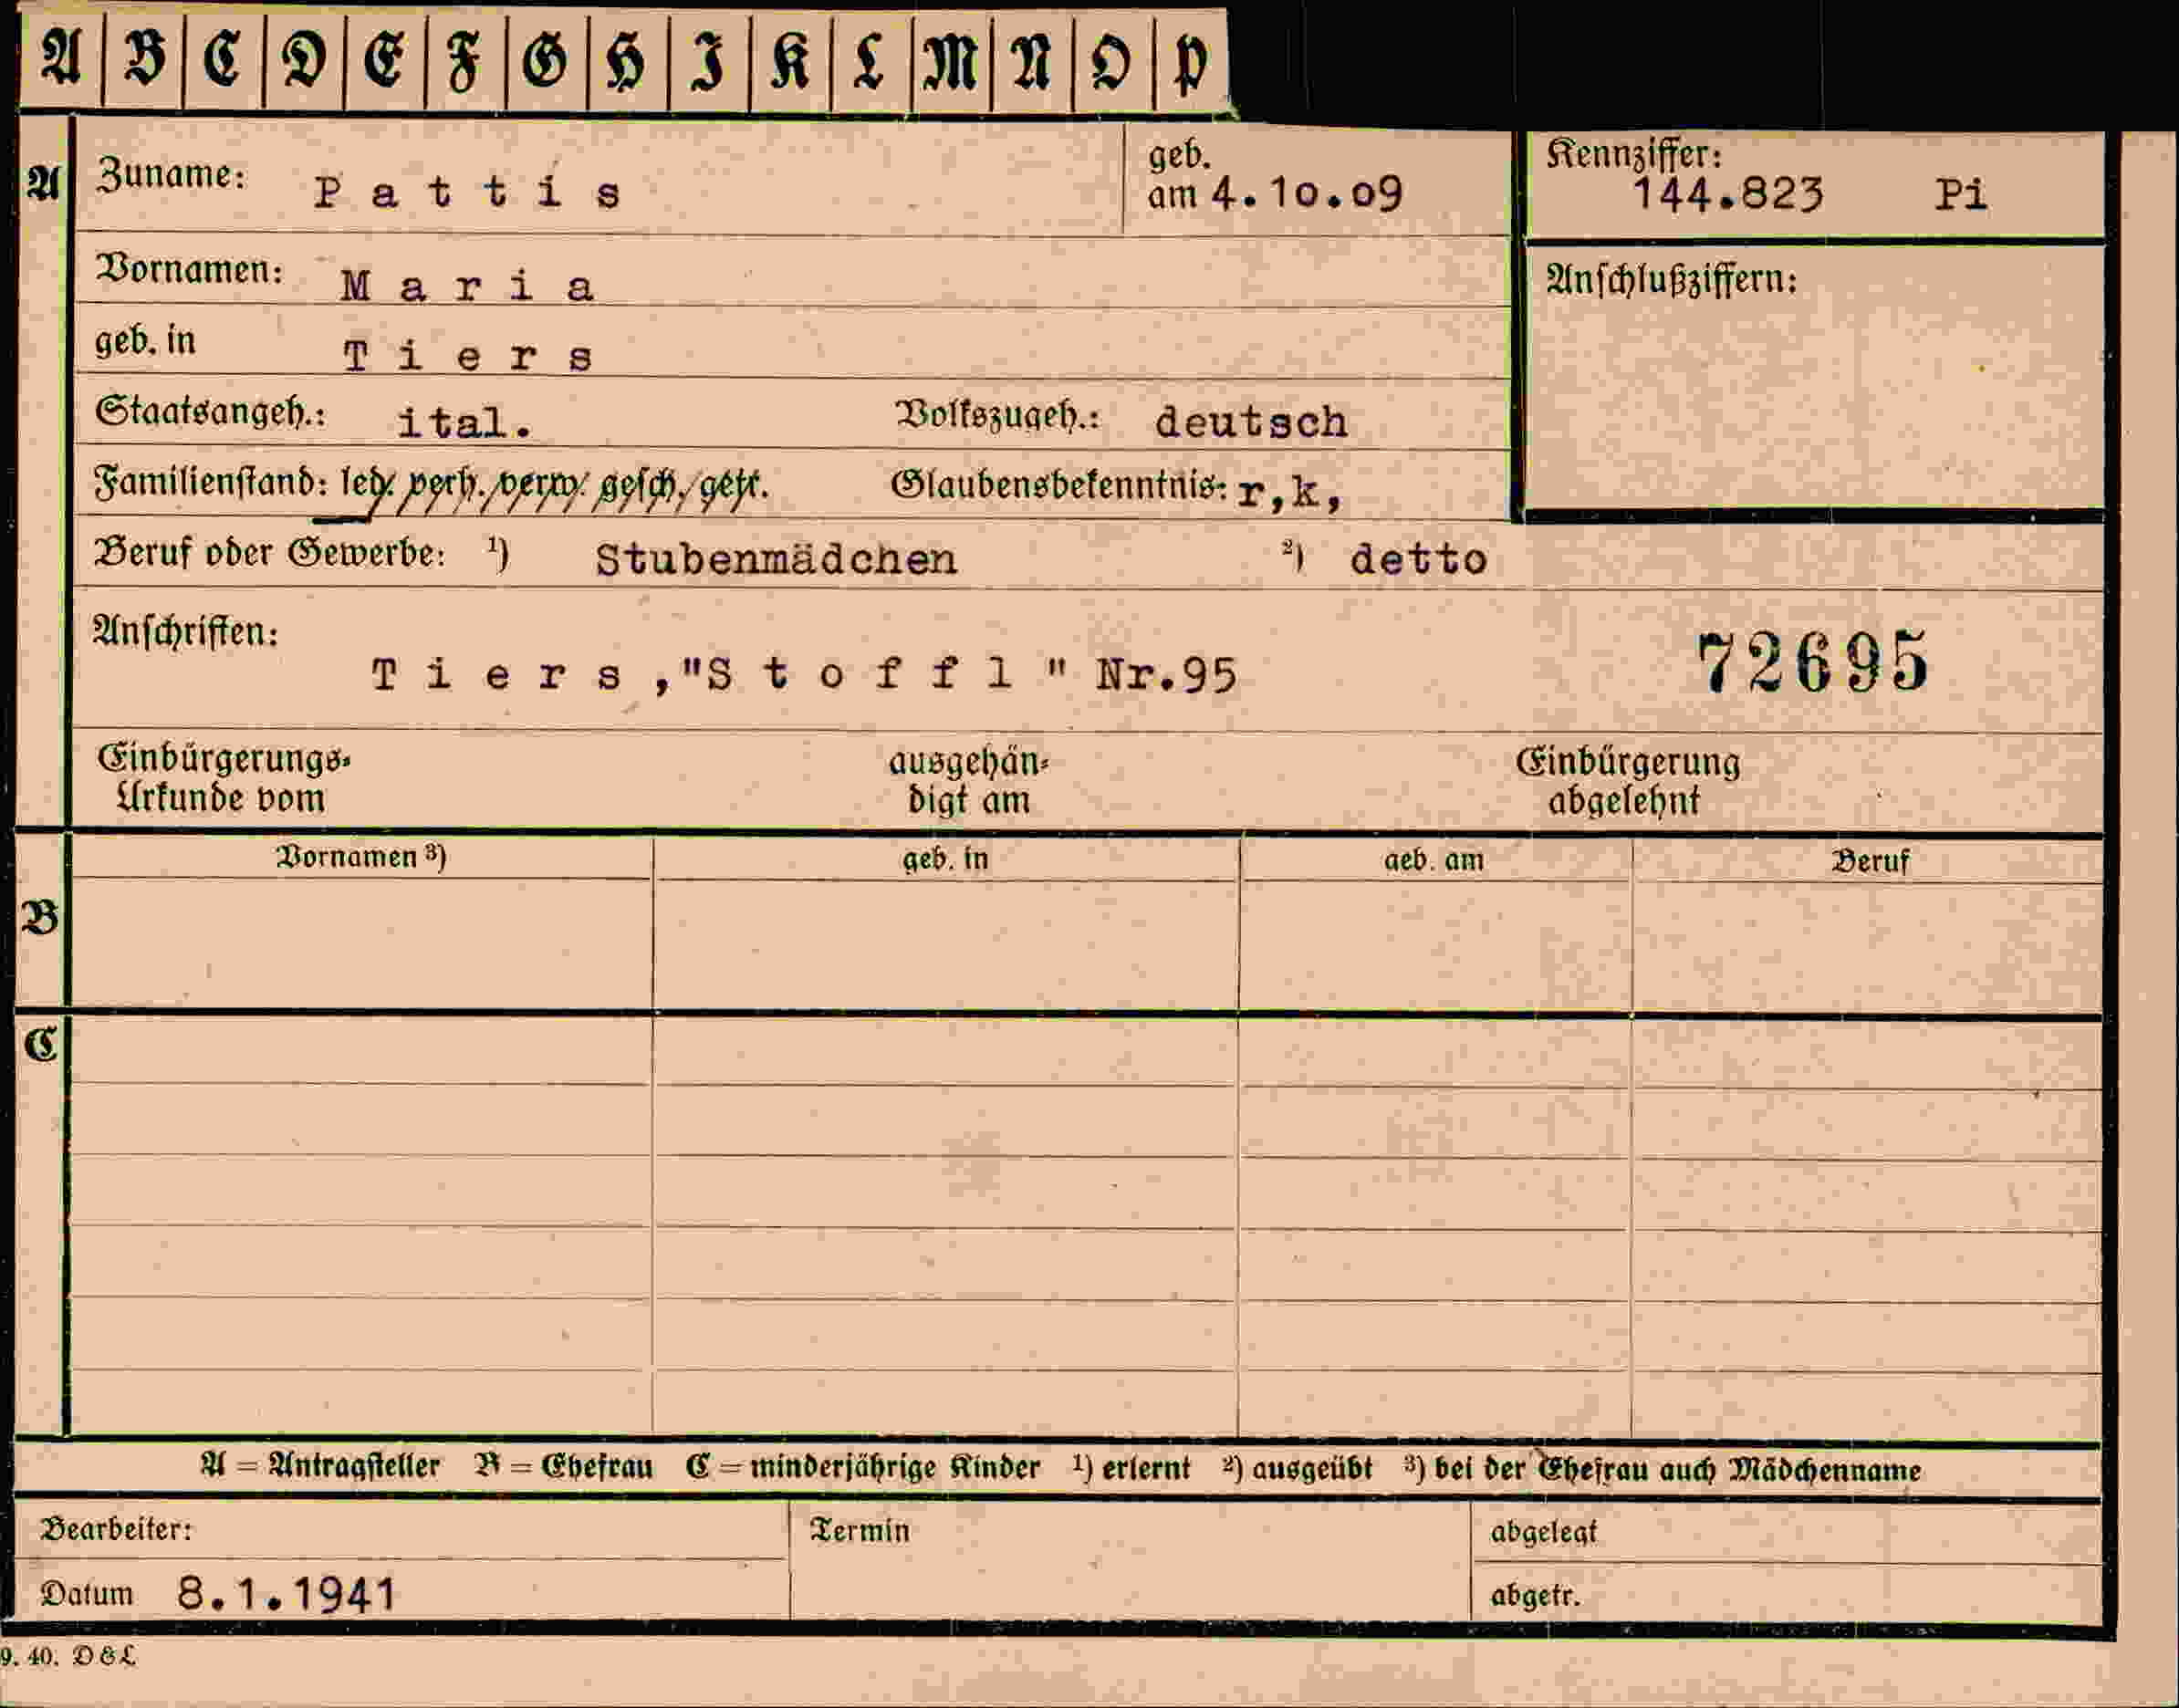 A B C D E F G H I K L M N O P
A Zuname: Pattis geb. am 4.10.09 Kennziffer: 144.823 Pi
Vornamen: Maria Anschlußziffern:
geb. in Tiers
Staatsangeh.: ital. Volkszugeh.: deutsch
Familienstand: led. verh./verw. gesch./getr. Glaubensbekenntnis: r,k,
Beruf oder Gewerbe: ¹) Stubenmädchen ²) detto
Anschriften:
Tiers,"Stoffl" Nr.95 72695
Einbürgerungs- Urkunde vom ausgehän- digt am Einbürgerung abgelehnt
Vornamen ³) geb. in geb. am Beruf
B
C
A = Antragsteller B = Ehefrau C = minderjährige Kinder ¹) erlernt ²) ausgeübt ³) bei der Ehefrau auch Mädchenname
Bearbeiter: Termin abgelegt
Datum 8.1.1941 abgetr.
9. 40. D & L